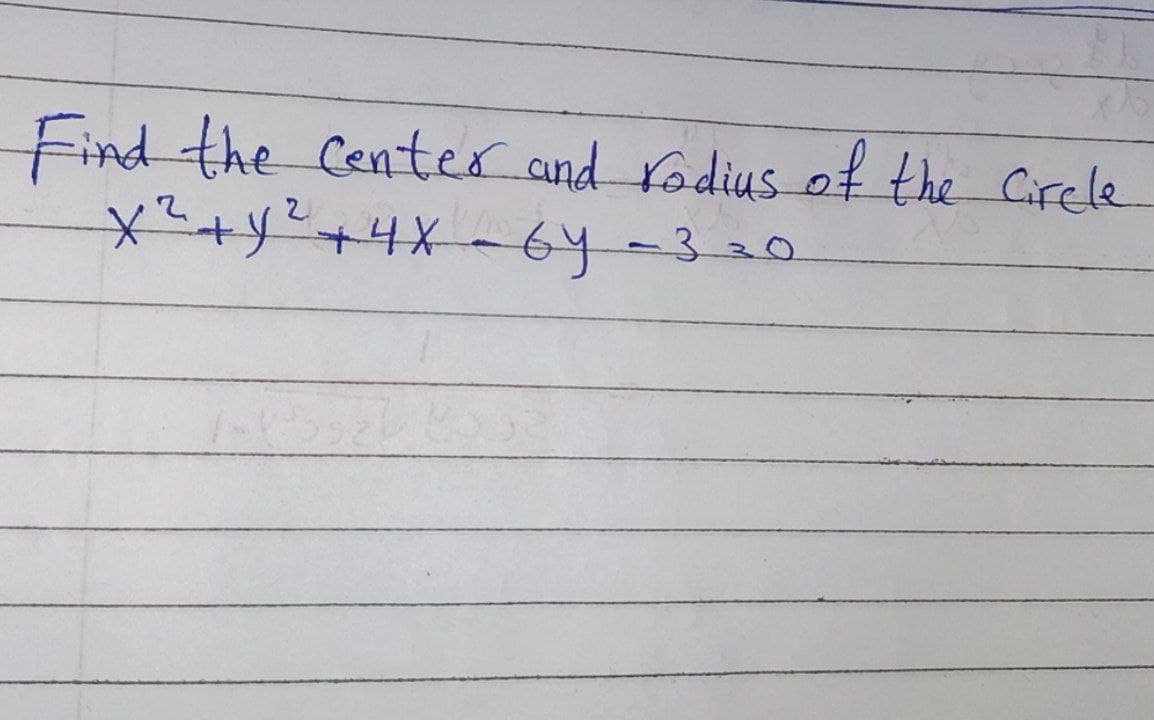 Find the Center and radius of the Circle
x² + y² + 4x - 6y - 3 = 0